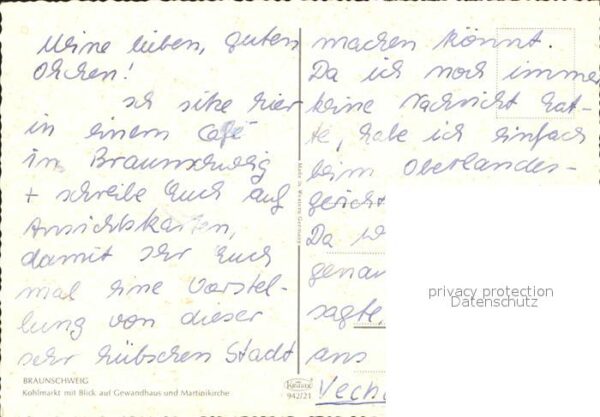 Meine lieben, guten
Ohchen!
Ich sitze hier
in einem Café
in Braunschweig
+ schreibe Euch auf
Ansichtskarten,
damit Ihr Euch
mal eine Vorstel-
lung von dieser
sehr hübschen Stadt
machen könnt.
Da ich noch immer
keine Nachricht hat-
te, habe ich einfach
beim Oberlandes-
gericht
Da
genau
sagte,
ans
Vech
Made in Western Germany
privacy protection
Datenschutz
BRAUNSCHWEIG
Kohlmarkt mit Blick auf Gewandhaus und Martinikirche
942/21